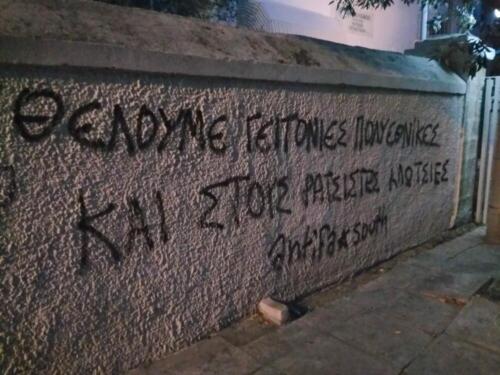 ΘΕΛΟΥΜΕ ΓΕΙΤΟΝΙΕΣ ΠΟΛΥΕΘΝΙΚΕΣ
ΚΑΙ ΣΤΟΥΣ ΡΑΤΣΙΣΤΕΣ ΚΛΩΤΣΙΕΣ
antifa★south